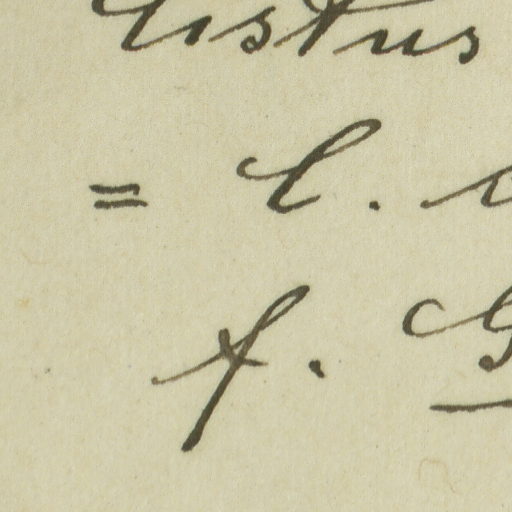 Cistus
= C.
f.